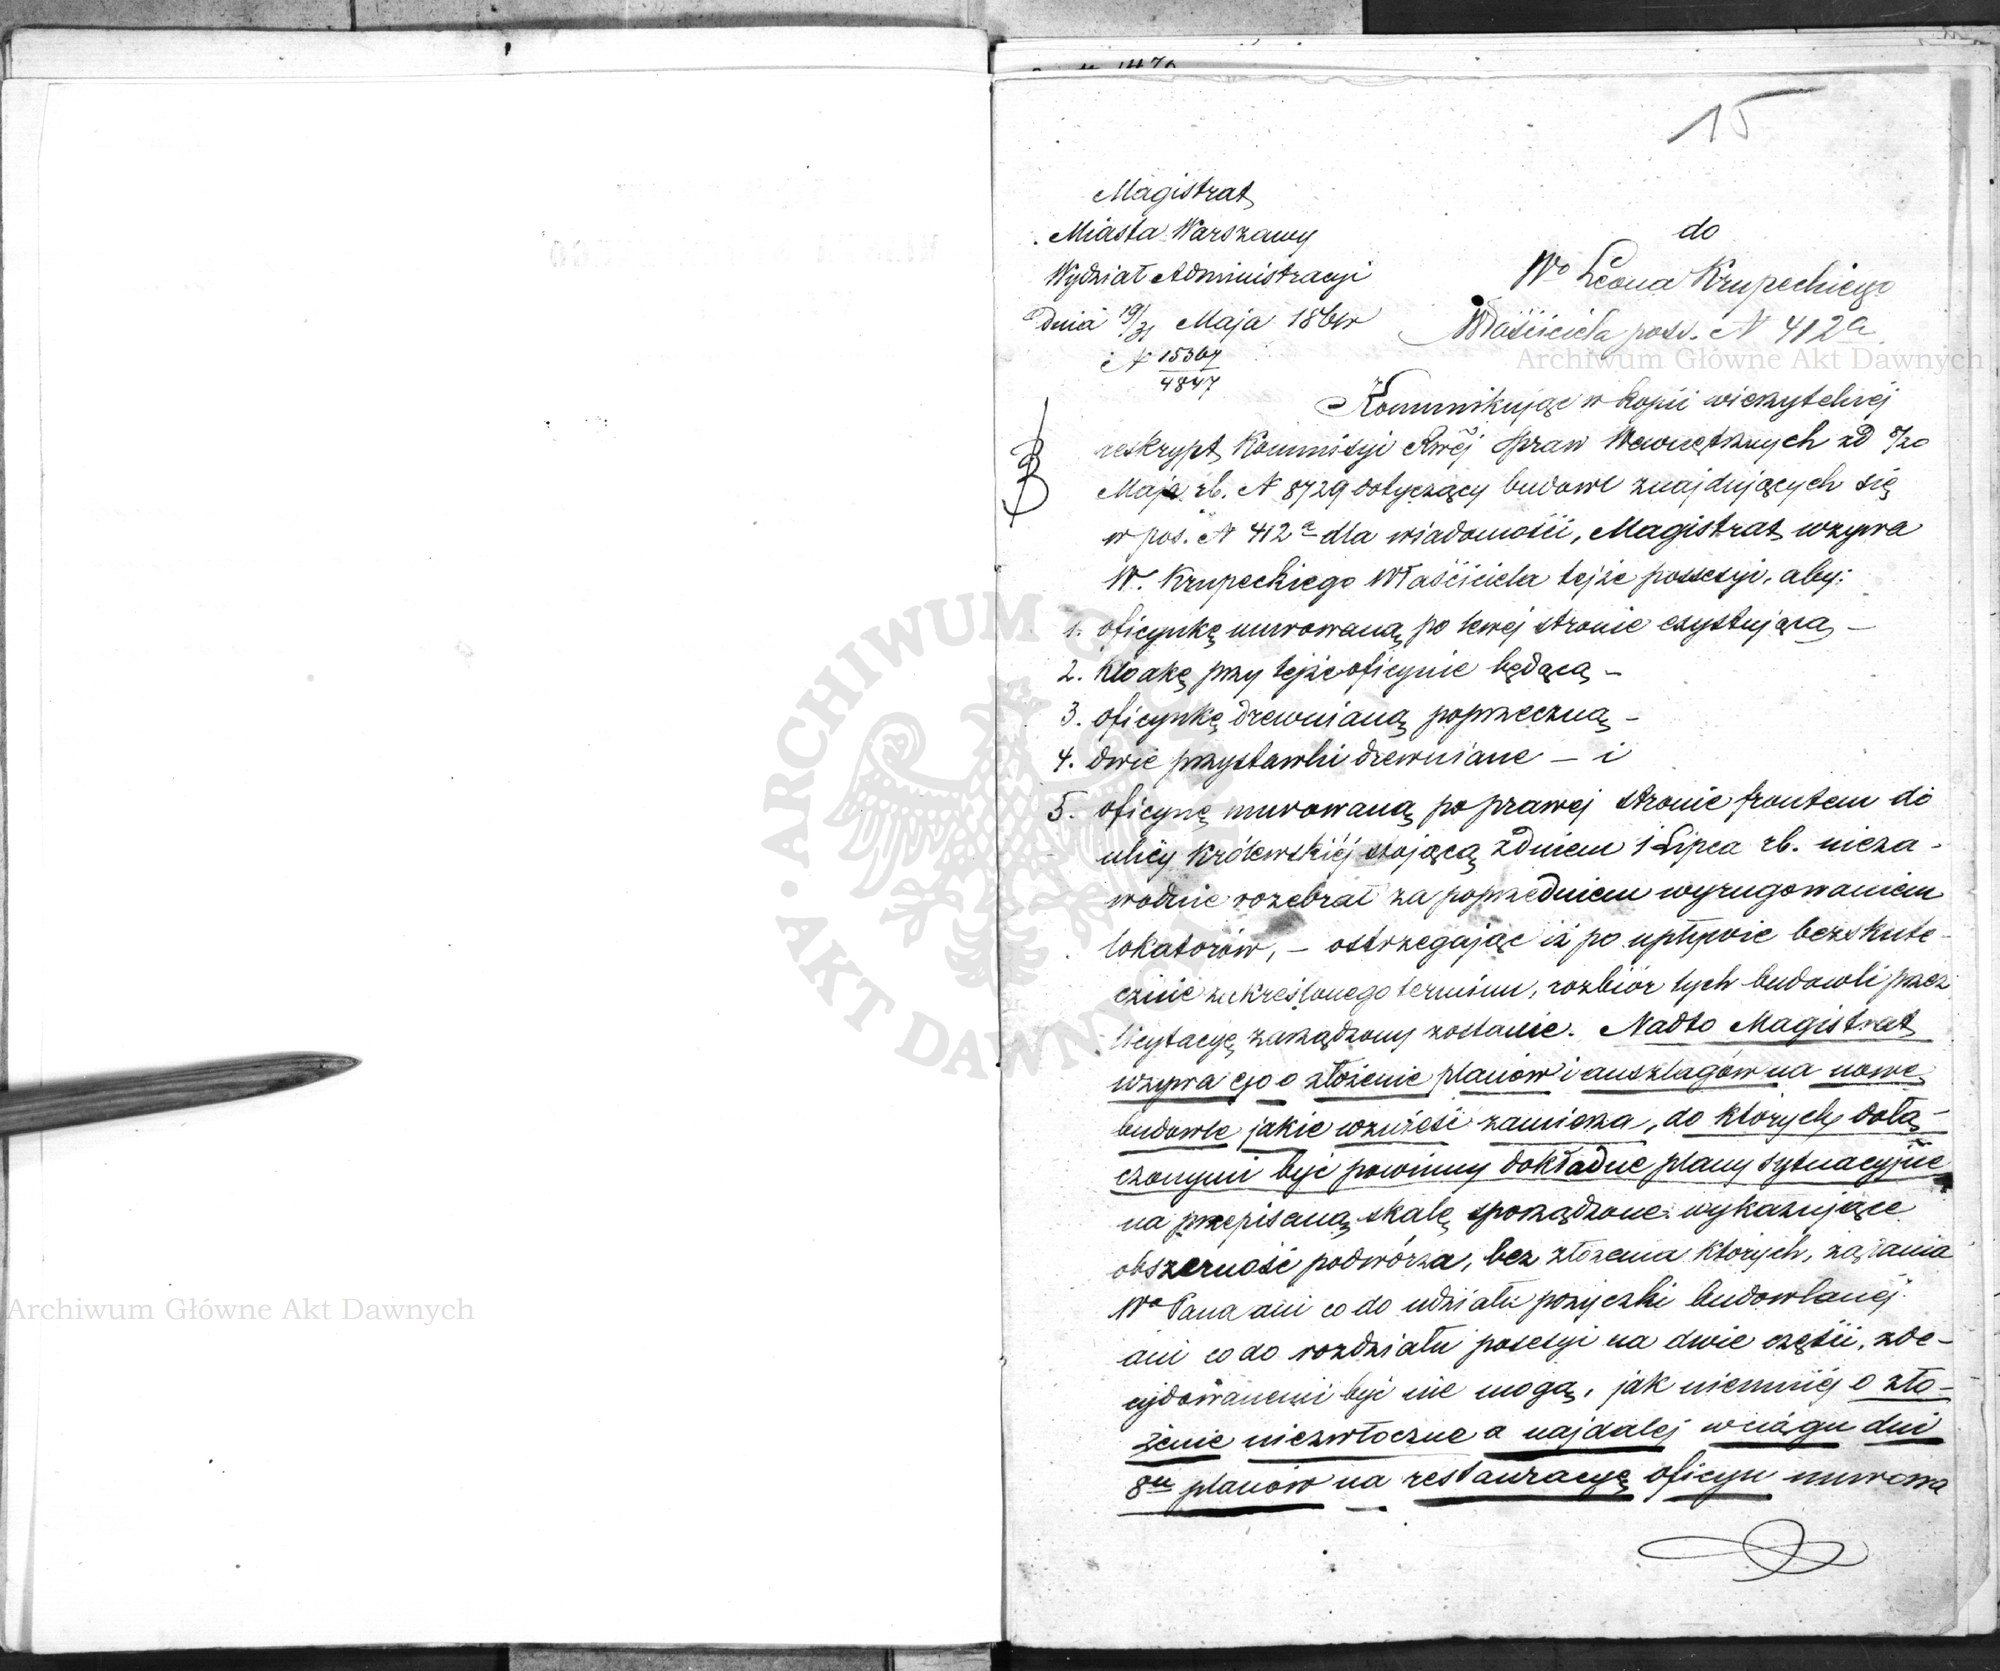 15
Magistrat
Miasta Warszawy
Wydział Administracyi
Dnia 19/31 Maja 186
N 15367/4847
do
Wo Leona Krupeckiego
Właściciela poss. N 412a
Kommunikując w kopii wierzytelnej
reskrypt Kommisyi Rwéj Spraw Wewnętrznych zd 8/20
Maja rb. N 8729 dotyczący budowl znajdujących się
w pos. N 412a dla wiadomości, Magistrat wzywa
W. Krupeckiego Właściciela tejże possesyi, aby:
1. oficynkę murowaną po lewej stronie exystującą —
2. kloakę przy tejże oficynie będącą —
3. oficynkę drewnianą poprzeczną —
4. dwie przystawki drewniane — i
5. oficynę murowaną po prawej stronie frontem do
ulicy Królewskiéj stojącą z dniem 1 Lipca rb. nieza-
wodnie rozebrał za poprzedniem wyrugowaniem
lokatorów, — ostrzegając iż po upływie bezskute-
cznie zakreślonego terminu, rozbiór tych budowli przez
licytacyę zarządzony zostanie. Nadto Magistrat
wzywa go o złożenie planów i anszlagów na nowe
budowle jakie wznieść zamierza, do których dołą-
czonymi być powinny dokładne plany sytuacyjne
na przepisaną skalę sporządzone wykazujące
obszerność podwórza, bez złożenia których, żądania
Wo Pana ani co do udziału pożyczki budowlanéj
ani co do rozdziału posesyi na dwie części, zde-
cydowanemi być nie mogą, jak niemniéj o zło-
żenie niezwłoczne a najdalej w ciągu dni
8u planów na restauracyę oficyn murowa
Archiwum Główne Akt Dawnych
Archiwum Główne Akt Dawnych
ARCHIWUM GŁÓWNE AKT DAWNYCH